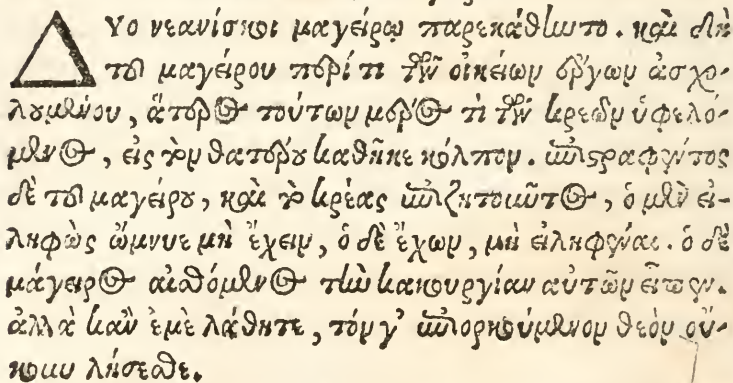 Δύο νεανίσκοι μαγείρῳ παρεκάθηντο. καὶ δὴ
τοῦ μαγείρου περί τι τῶν οἰκείων ἔργων ἀσχο-
λουμένου, ἅτερος τούτων μέρος τὶ τῶν κρεῶν ὑφελό-
μενος, εἰς τὸν θατέρου καθῆκε κόλπον. ἐπιστραφέντος
δὲ τοῦ μαγείρου, καὶ τὸ κρέας ἐπιζητοῦντος, ὁ μὲν εἰ-
ληφὼς ὤμνυε μὴ ἔχειν, ὁ δὲ ἔχων, μὴ εἰληφέναι. ὁ δὲ
μάγειρος αἰσθόμενος τὴν κακουργίαν αὐτῶν εἶπεν.
ἀλλὰ κἂν ἐμὲ λάθητε, τόν γ' ἐπιορκούμενον θεὸν οὔ-
κουν λήσεσθε.